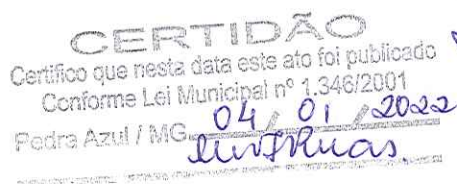 CERTIDÃO
Certifico que nesta data este ato foi publicado
Conforme Lei Municipal nº 1.346/2001
Pedra Azul / MG 04 / 01 / 2022